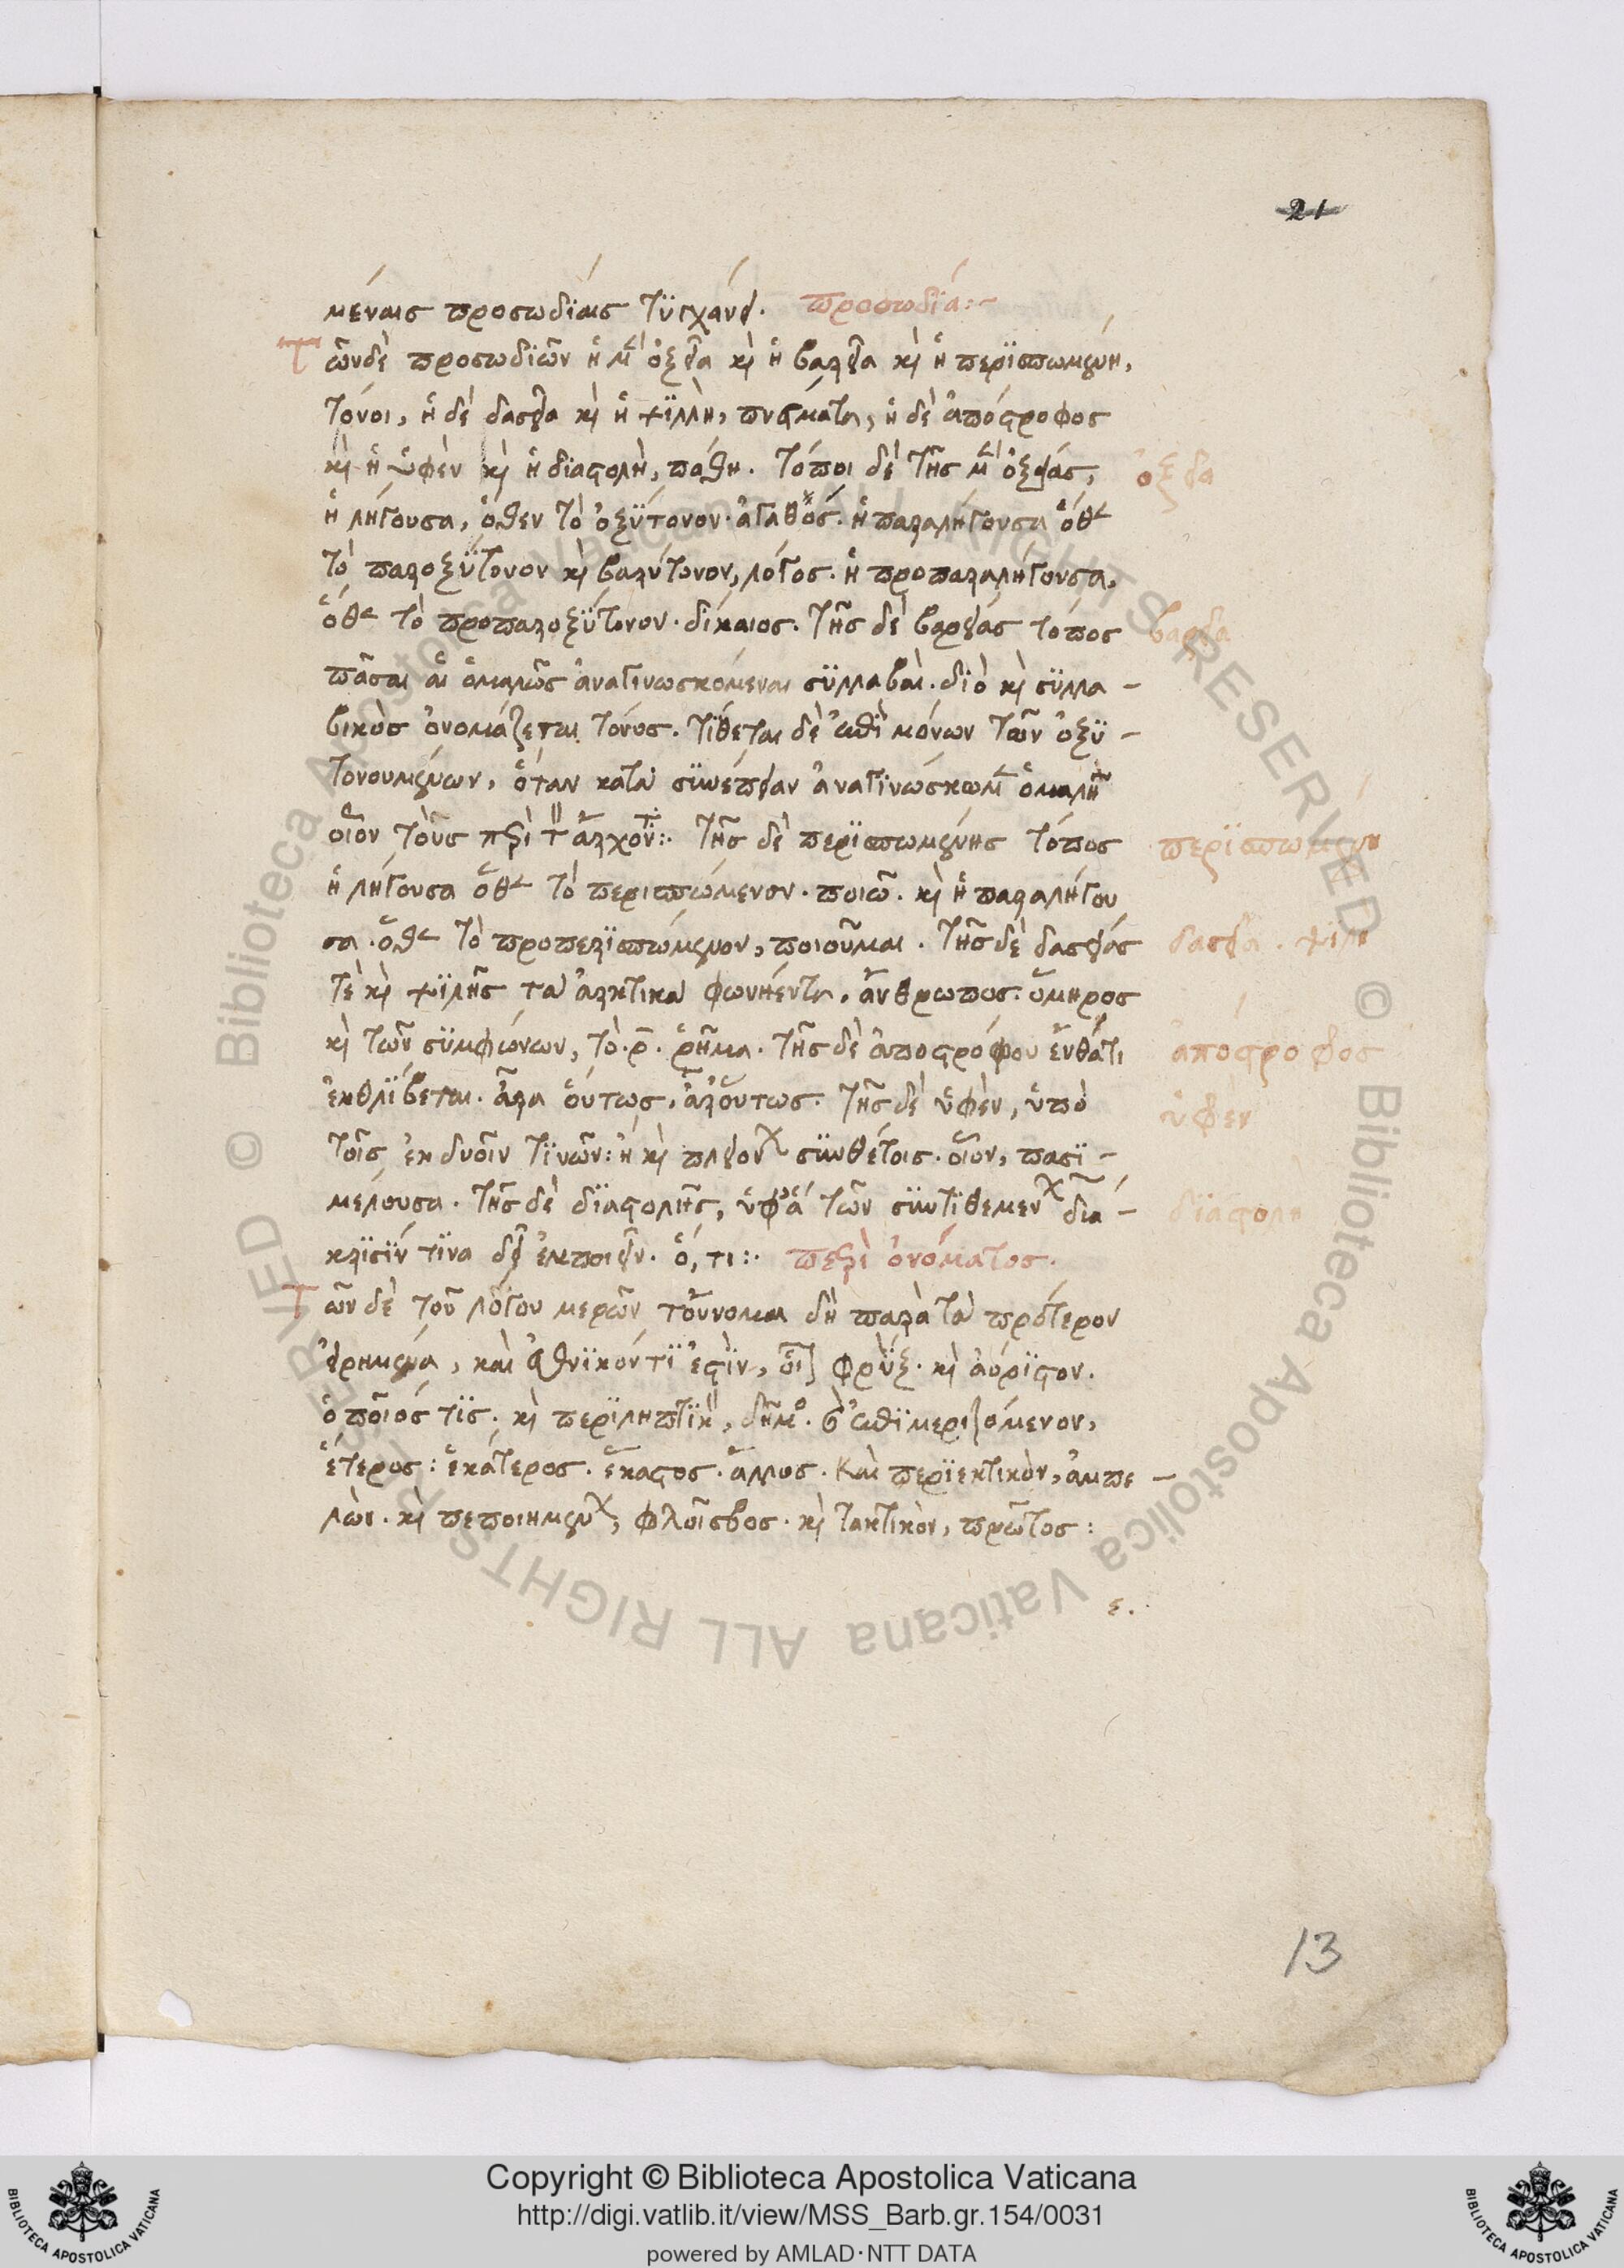 21
μέναις προσωδίαις τϋγχάνει. προσωδία:-
Τῶνδὲ προσωδϊῶν ἡ μὲν ὀξεῖα κὶ ἡ βαρεῖα κὶ ἡ περϊσπωμένη,
τόνοι, ἡ δὲ δασεῖα κὶ ἡ ψϊλλὴ, πνεύματα, ἡ δὲ ἀπόστροφος
κὶ ἡ ὑφὲν κὶ ἡ δϊαστολὴ, πάθη. τόποι δὲ τῆς μὲν ὀξείας,
ὀξεῖα
ἡ λήγουσα, ὅθεν τὸ ὀξϋτονον. ἀγαθός. ἡ παραλήγουσα ὅθεν
τὸ παροξϋτονον κὶ βαρύτονον, λόγος. ἡ προπαραλήγουσα,
ὅθεν τὸ προπαροξϋτονον. δίκαιος. τῆς δὲ βαρείας τόπος
βαρεῖα
πᾶσαι αἱ ὁμαλῶς ἀναγινωσκόμεναι σϋλλαβαὶ. δϊὸ κὶ σϋλλα-
βικὸς ὀνομάζεται τόνος. τίθεται δὲ ἐπὶ μόνων τῶν ὀξϋ-
τονουμένων, ὅταν κατὰ σϋνέπειαν ἀναγϊνώσκωμεν ὁμαλὴν
οἷον τοὺς περὶ τὴν ἀρχὴν:· τῆς δὲ περϊσπωμένης τόπος
περϊσπωμένη
ἡ λήγουσα ὅθεν τὸ περισπώμενον. ποιῶ. κὶ ἡ παραλήγου
σα. ὅθεν τὸ προπερϊσπώμενον, ποιοῦμαι. τῆς δὲ δασείας
δασεῖα. ψϊλὴ
τὲ κὶ ψϊλῆς τὰ ἀρκτικὰ φωνήεντα, ἄνθρωπος. ὅμηρος
κὶ τῶν σϋμφώνων, τὸ. ρ. ῥῆμα. τῆς δὲ ἀποστρόφου ἔνθά τι
ἀπόστροφος
ἐκθλϊβεται. ἆρα οὕτως, ἆρ' οὕτως. τῆς δὲ ὑφὲν, ὑπὸ
ὑφὲν
τοῖς ἐκ δυοῖν τϊνῶν: ἢ κὶ πλειόνων σϋνθέτοις. οἷον, πασϊ-
μέλουσα. τῆς δὲ δϊαστολῆς, ὑφ' ἃ τῶν σϋντϊθεμένων διά-
δϊαστολὴ
κρϊσϊν τϊνα δεῖ ἐμποιεῖν. ὅ, τι:· περὶ ὀνόματος.
Τῶν δὲ τοῦ λόγου μερῶν τοὔνομαι δὴ παρὰ τὰ πρότερον
εἰρημένα, καὶ ἐθνϊκόν τϊ ἐστϊν, οἷον φρὺξ. κὶ ἀόρϊστον.
ὁποῖός τϊς. κὶ περϊληπτϊκὸν, δῆμος. κὶ ἐπϊμεριζόμενον,
ἕτερος: ἑκάτερος. ἕκαστος. ἄλλος. καὶ περϊεκτικὸν, ἀμπε-
λὼν. κὶ πεποιημένον, φλοῖσβος. κὶ τακτικὸν, πρῶτος:
ε.
13
Copyright © Biblioteca Apostolica Vaticana
http://digi.vatlib.it/view/MSS_Barb.gr.154/0031
powered by AMLAD·NTT DATA
BIBLIOTECA APOSTOLICA VATICANA
BIBLIOTECA APOSTOLICA VATICANA
© Biblioteca Apostolica Vaticana ALL RIGHTS RESERVED © Biblioteca Apostolica Vaticana ALL RIGHTS RESERVED